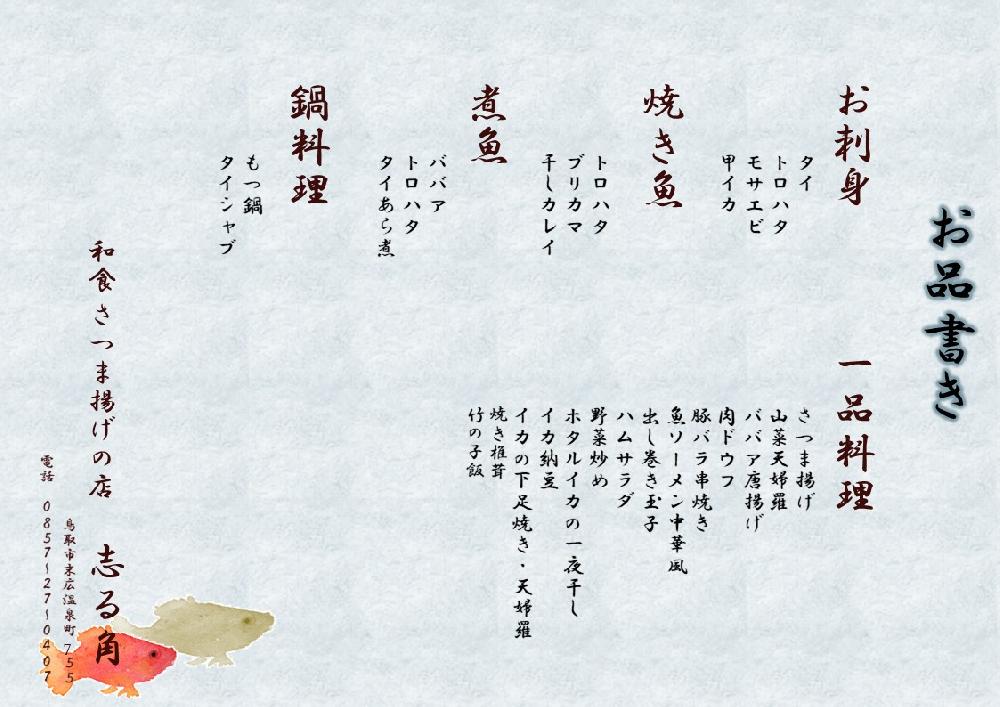 お品書き
お刺身
タイ
トロハタ
モサエビ
甲イカ
焼き魚
トロハタ
ブリカマ
干しカレイ
煮魚
ババア
トロハタ
タイあら煮
鍋料理
もつ鍋
タイシャブ
一品料理
さつま揚げ
山菜天婦羅
ババア唐揚げ
肉ドウフ
豚バラ串焼き
魚ソーメン中華風
出し巻き玉子
ハムサラダ
野菜炒め
ホタルイカの一夜干し
イカ納豆
イカの下足焼き・天婦羅
焼き椎茸
竹の子飯
和食さつま揚げの店 志る角
鳥取市末広温泉町755
電話 0857-27-0407